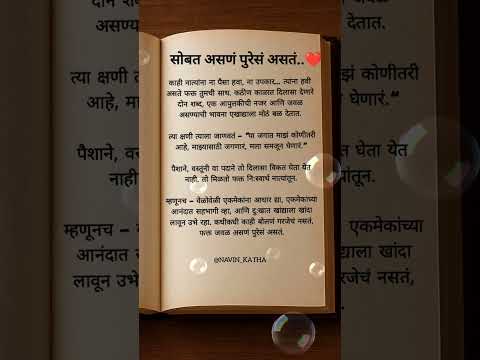 सोबत असणं पुरेसं असतं..❤️
काही नात्यांना ना पैसा हवा, ना उपकार... त्यांना हवी
असते फक्त तुमची साथ. कठीण काळात दिलासा देणारे
दोन शब्द, एक आपुलकीची नजर आणि जवळ
असण्याची भावना एखाद्याला मोठं बळ देतात.
त्या क्षणी त्याला जाणवतं – "या जगात माझं कोणीतरी
आहे, माझ्यासाठी जगणारं, मला समजून घेणारं."
पैशाने, वस्तूंनी वा पदाने तो दिलासा विकत घेता येत
नाही. तो मिळतो फक्त निःस्वार्थ नात्यांतून.
म्हणूनच – वेळोवेळी एकमेकांना आधार द्या, एकमेकांच्या
आनंदात सहभागी व्हा, आणि दुःखात खांद्याला खांदा
लावून उभे रहा. कधीकधी काही बोलणं गरजेचं नसतं,
फक्त जवळ असणं पुरेसं असतं.
@NAVIN_KATHA